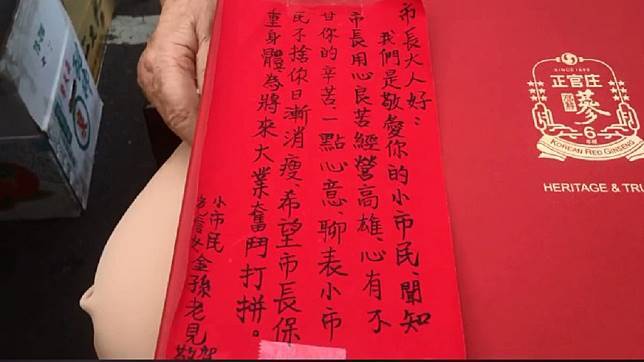 市長大人好：
我們是敬愛你的小市民、聞知
市長用心良苦經營高雄、心有不
甘你的辛苦、一點心意、聊表小市
民不捨你日漸消瘦、希望市長保
重身體為將來大業奮鬥打拼。
小市民
SINCE 1899
正官庄
蔘
6
KOREAN RED GINSENG
HERITAGE & TRU